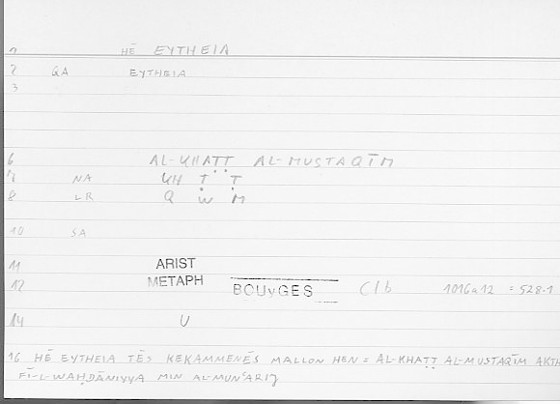 1 HĒ EYTHEIA
2 GA EYTHEIA
3
6 AL-KHAṬṬ AL-MUSTAQĪM
7 NA KH Ṭ Ṭ
8 LR Q W M
10 SA
11 ARIST
12 METAPH BOUyGES C/b 1016a12 = 528.1
14 U
16 HĒ EYTHEIA TĒS KEKAMMENĒS MALLON HEN = AL-KHAṬṬ AL-MUSTAQĪM AKTH
FĪ-L-WAḤDĀNIYYA MIN AL-MUNʿARIJ